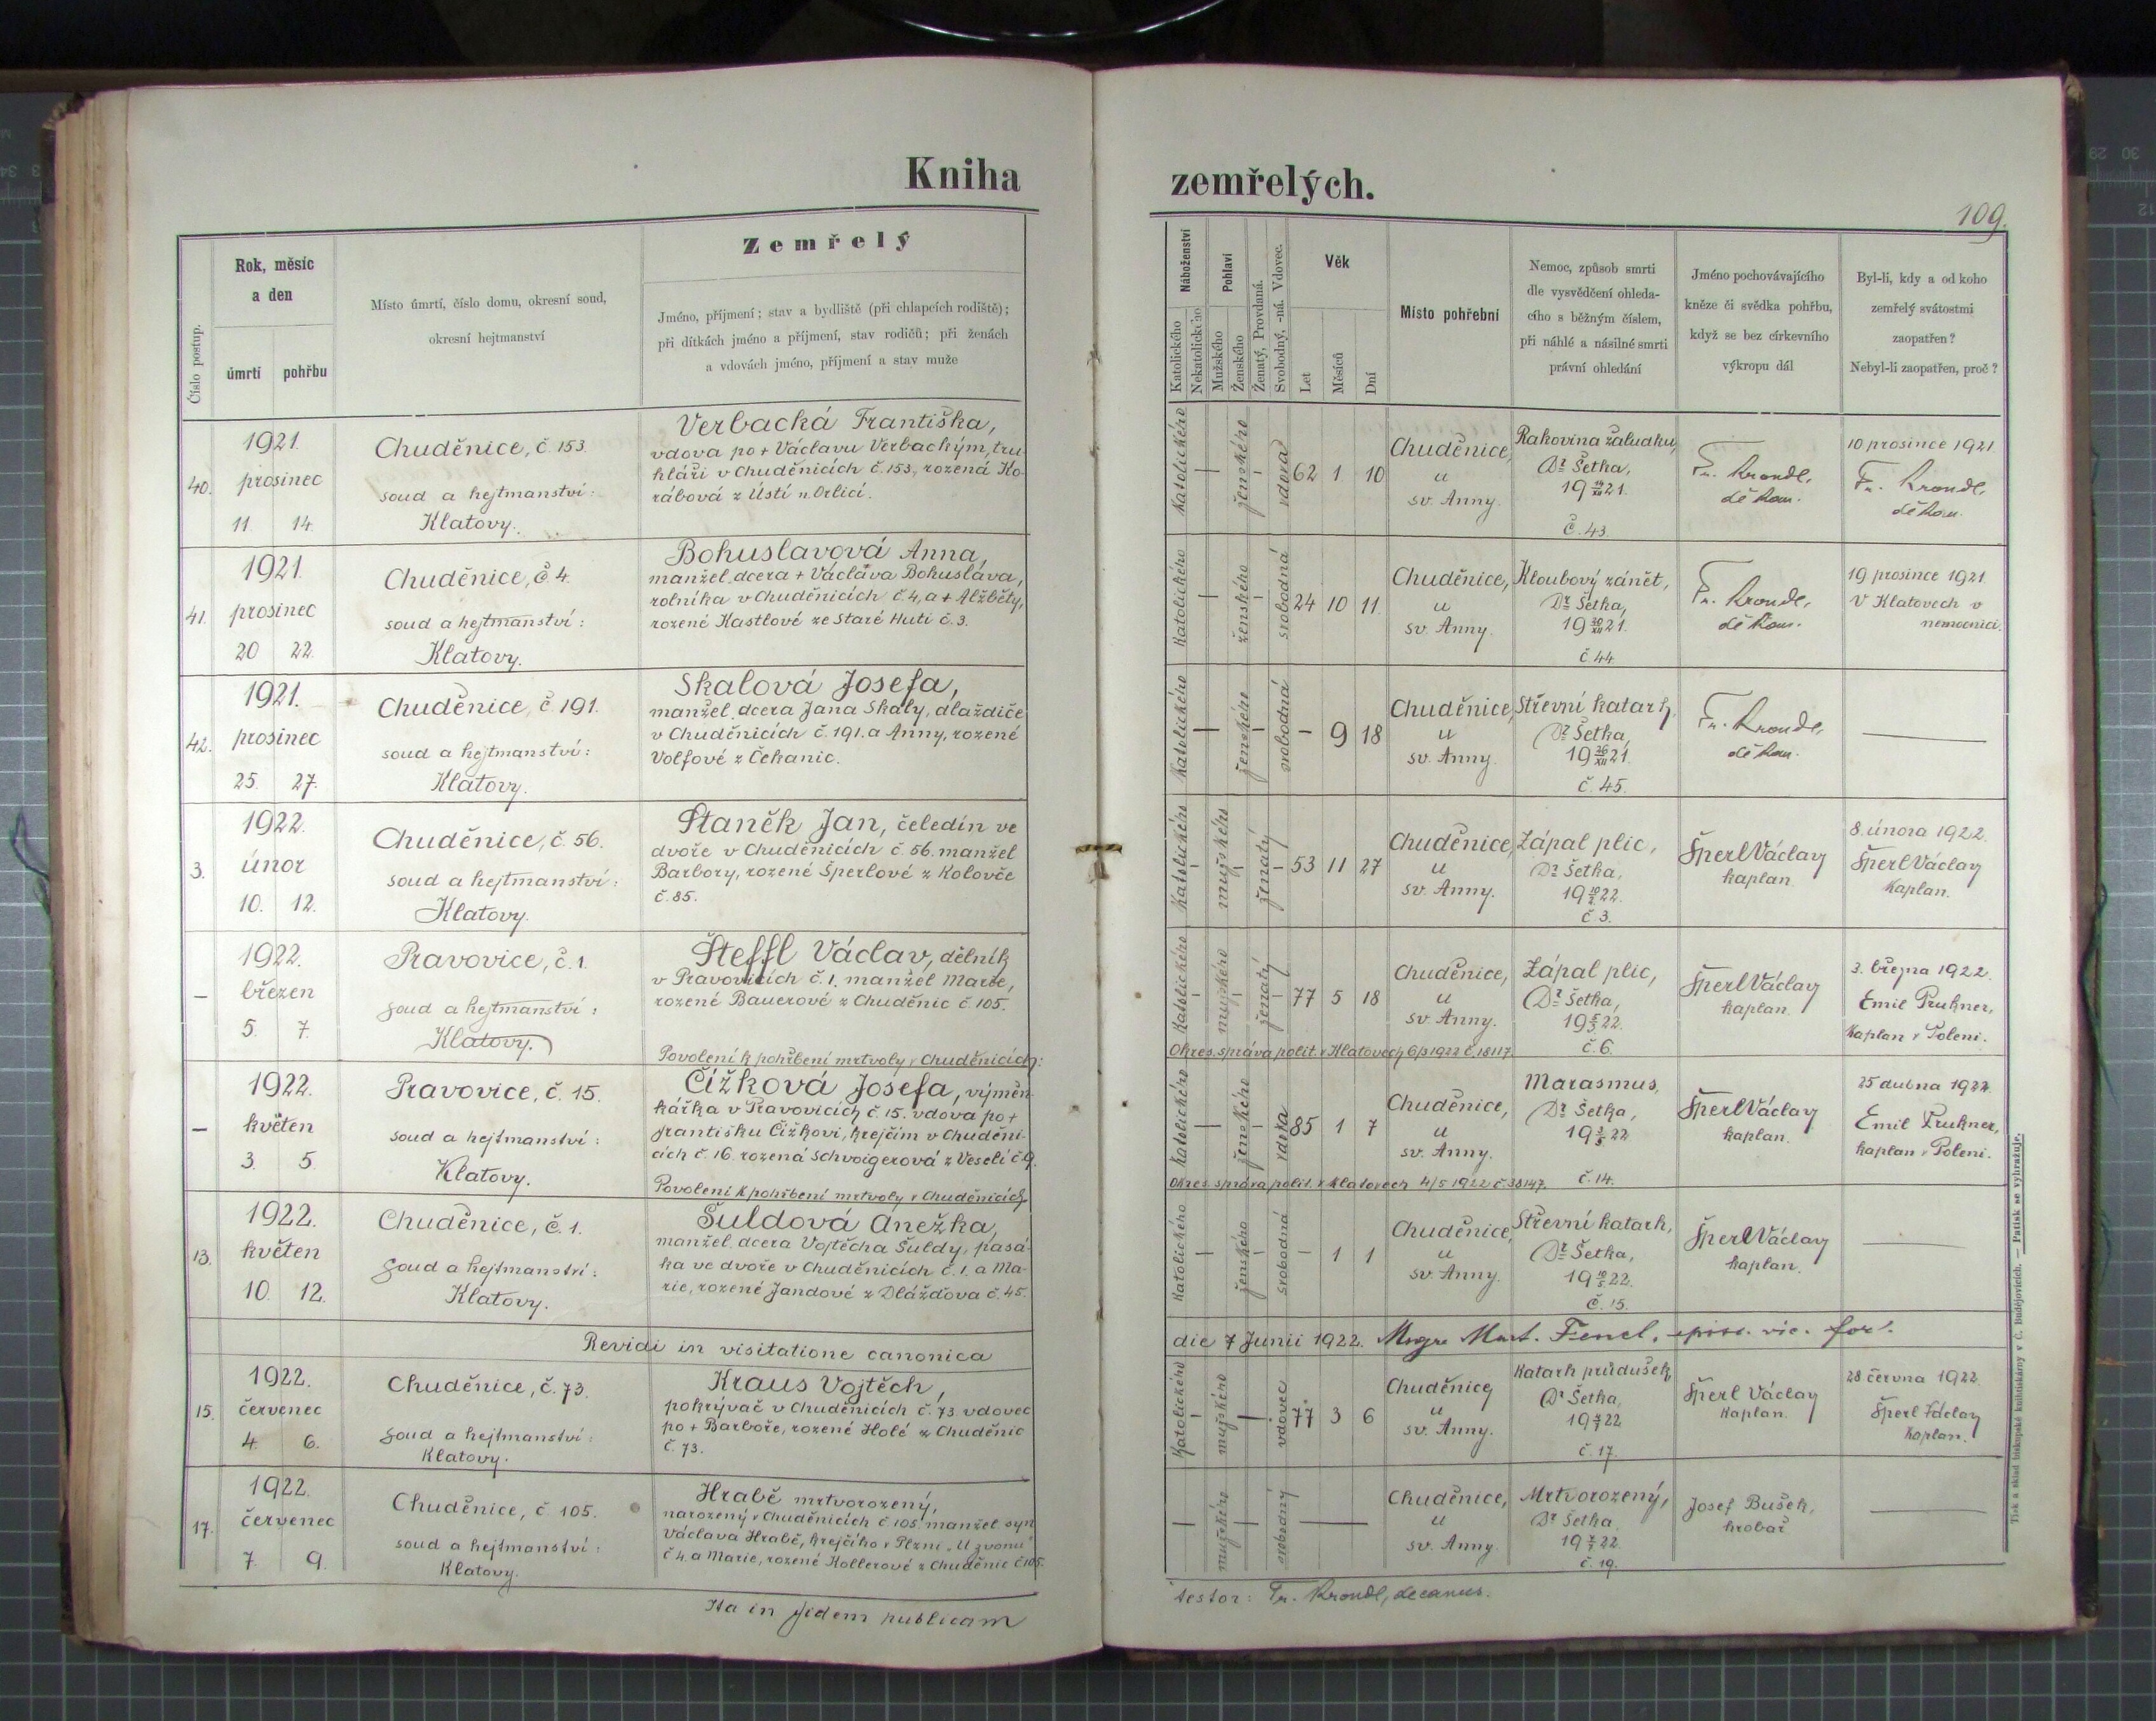 Kniha
zemřelých.
109.
Číslo postup.
Rok, měsíc
a den
úmrtí
pohřbu
Místo úmrtí, číslo domu, okresní soud,
okresní hejtmanství
Zemřelý
Jméno, příjmení; stav a bydliště (při chlapcích rodiště);
při dítkách jméno a příjmení, stav rodičů; při ženách
a vdovách jméno, příjmení a stav muže
Náboženství
Katolického
Nekatolického
Pohlaví
Mužského
Ženského
Ženatý, Provdaná.
Svobodný, -ná. Vdovec.
Věk
Let
Měsíců
Dní
Místo pohřební
Nemoc, způsob smrti
dle vysvědčení ohleda-
cího s běžným číslem,
při náhlé a násilné smrti
právní ohledání
Jméno pochovávajícího
kněze či svědka pohřbu,
když se bez církevního
výkropu dál
Byl-li, kdy a od koho
zemřelý svátostmi
zaopatřen?
Nebyl-li zaopatřen, proč?
40.
1921.
prosinec
11. 14.
Chuděnice, č 153.
soud a hejtmanství:
Klatovy.
Verbacká Františka,
vdova po + Václavu Verbackým, tru-
hláři v Chuděnicích č. 153, rozená Ko-
rábová z Ústí n. Orlicí.
Katolického
ženského
vdova
62 1 10
Chuděnice,
u
sv. Anny.
Rakovina žaludku,
Dr Šetka,
19 14/XII 21.
Č. 43.
Fr. Krondl,
děkan.
10 prosince 1921
Fr. Krondl,
děkan.
41.
1921.
prosinec
20 22.
Chuděnice, č. 4.
soud a hejtmanství:
Klatovy.
Bohuslavová Anna,
manžel. dcera + Václava Bohuslava,
rolníka v Chuděnicích č. 4, a + Alžběty,
rozené Kastlové ze Staré Huti č. 3.
Katolického
ženského
svobodná
24 10 11.
Chuděnice,
u
sv. Anny.
Kloubový zánět,
Dr Šetka,
19 20/XII 21.
č. 44
Fr. Krondl,
děkan.
19 prosince 1921.
V Klatovech v
nemocnici.
42.
1921.
prosinec
25. 27.
Chuděnice, č. 191.
soud a hejtmanství:
Klatovy.
Skalová Josefa,
manžel. dcera Jana Skaly, dlaždiče
v Chuděnicích č. 191. a Anny, rozené
Volfové z Čekanic.
Katolického
ženského
svobodná
– 9 18
Chuděnice,
u
sv. Anny.
Střevní katarh,
Dr Šetka,
19 26/XII 21.
č. 45.
Fr. Krondl,
děkan.
3.
1922.
únor
10. 12.
Chuděnice, č. 56.
soud a hejtmanství:
Klatovy.
Staněk Jan, čeledín ve
dvoře v Chuděnicích č. 56. manžel
Barbory, rozené Šperlové z Kolovče
č. 85.
Katolického
mužského
ženatý
53 11 27
Chuděnice,
u
sv. Anny.
Zápal plic,
Dr Šetka,
19 10/2. 22.
č. 3.
Šperl Václav
kaplan.
8. února 1922.
Šperl Václav
Kaplan.
–
1922.
březen
5. 7.
Pravovice, č. 1.
soud a hejtmanství:
Klatovy.
Šteffl Václav, dělník
v Pravovicích č. 1. manžel Marie,
rozené Bauerové z Chuděnic č. 105.
Povolení k pohřbení mrtvoly v Chuděnicích:
Katolického
mužského
ženatý
77 5 18
Chuděnice,
u
sv. Anny.
Zápal plic,
Dr Šetka,
19 5/3 22.
č. 6.
Šperl Václav
kaplan.
3. března 1922.
Emil Prukner,
Kaplan v Poleni.
Okres. správa polit. v Klatovech 6/3 1922 č. 18117.
–
1922.
květen
3. 5.
Pravovice, č. 15.
soud a hejtmanství:
Klatovy.
Čížková Josefa, výměn-
kářka v Pravovicích č. 15. vdova po +
Františku Čížkovi, krejčím v Chuděni-
cích č. 16. rozená Schvoigerová z Veselí č. 9.
Povolení k pohřbení mrtvoly v Chuděnicích
Katolického
ženského
vdova
85 1 7
Chuděnice,
u
sv. Anny.
Marasmus,
Dr Šetka,
19 3/5 22
č. 14.
Šperl Václav
kaplan.
25 dubna 1922.
Emil Prukner,
kaplan v Poleni.
Okres. správa polit. v Klatovech 4/5 1922 č. 38147.
13.
1922.
květen
10. 12.
Chuděnice, č. 1.
soud a hejtmanství:
Klatovy.
Šuldová Anežka,
manžel. dcera Vojtěcha Šuldy, pasá-
ka ve dvoře v Chuděnicích č. 1. a Ma-
rie, rozené Jandové z Dlážďova č. 45.
Katolického
ženského
svobodná
– 1 1
Chuděnice,
u
sv. Anny.
Střevní katarh,
Dr Šetka,
19 10/5. 22.
Č. 15.
Šperl Václav
kaplan.
Revidi in visitatione canonica
die 7 Junii 1922. Msgre Mart. Fencl, episc. vic. for.
15.
1922.
červenec
4. 6.
Chuděnice, č. 73.
soud a hejtmanství:
Klatovy.
Kraus Vojtěch,
pokrývač v Chuděnicích č. 73. vdovec
po + Barboře, rozené Holé z Chuděnic
č. 73.
Katolického
mužského
vdovec
77 3 6
Chuděnice
u
sv. Anny.
Katarh průdušek,
Dr Šetka,
19 4/7 22
č. 17.
Šperl Václav
Kaplan.
28 června 1922
Šperl Václav
Kaplan.
17.
1922.
červenec
7. 9.
Chuděnice, č 105.
soud a hejtmanství:
Klatovy.
Hrabě mrtvorozený,
narozený v Chuděnicích č 105. manžel. syn
Václava Hrabě, krejčího v Plzni „U zvonu“
č 4. a Marie, rozené Kollerové z Chuděnic č 105.
mužského
svobodný
Chuděnice,
u
sv. Anny.
Mrtvorozený,
Dr Šetka,
19 7/7. 22.
č. 19.
Josef Bušek,
hrobař
Ita in fidem publicam
testor: Fr. Krondl, decanus.
Tisk a sklad biskupské knihtiskárny v č. Budějovicích. — Patisk se vyhražuje.